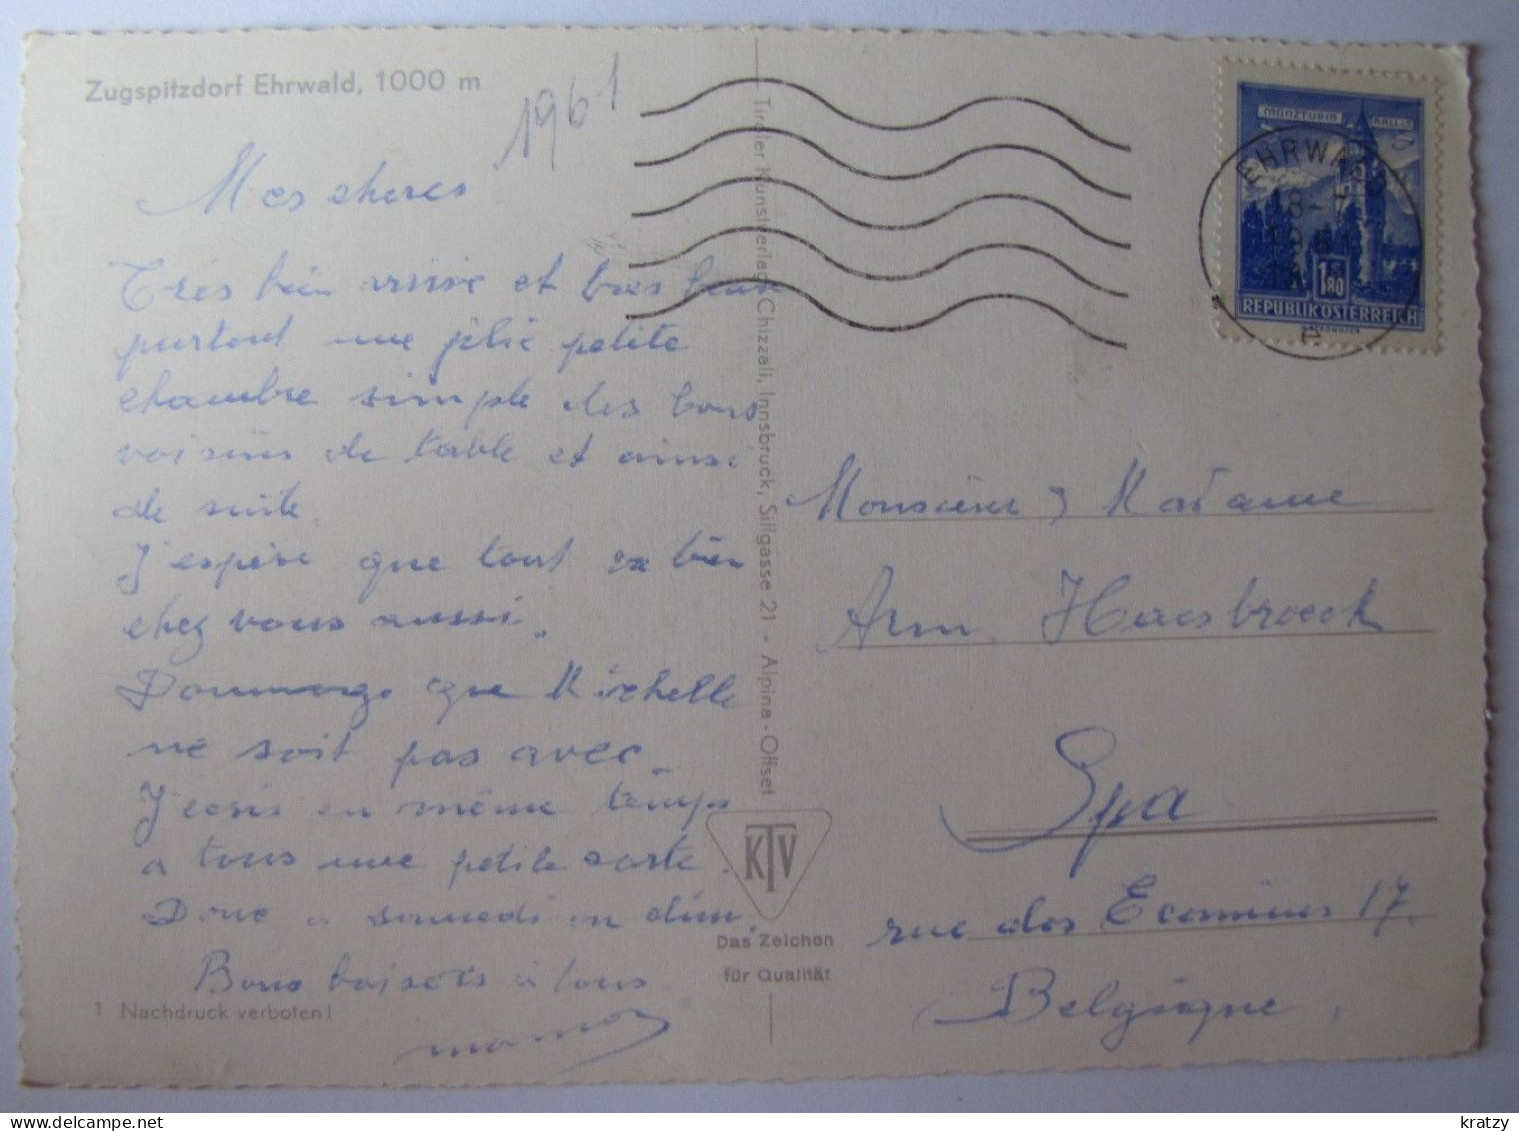 Zugspitzdorf Ehrwald, 1000 m
1961
Mes cheres
Très bien arrivé et tres beau
partout une jolie petite
chambre simple des bons
voisins de table et ainsi
de suite.
J'espère que tout va bien
chez vous aussi.
Dommage que Michelle
ne soit pas avec.
J'ecris en même temps
a tous une petite carte.
Donc a samedi en dim.
Bons baisers à tous
1 Nachdruck verboten!
Tiroler Kunstverlag Chizzali, Innsbruck, Sillgasse 21 - Alpina-Offset
KTV
Das Zeichen
für Qualität
MÜNZTURM HALL
S
1.80
REPUBLIK ÖSTERREICH
EHRWALD
Monsieur & Madame
Arm. Haesbroeck
Spa
rue des Ecomines 17.
Belgique
kratzy